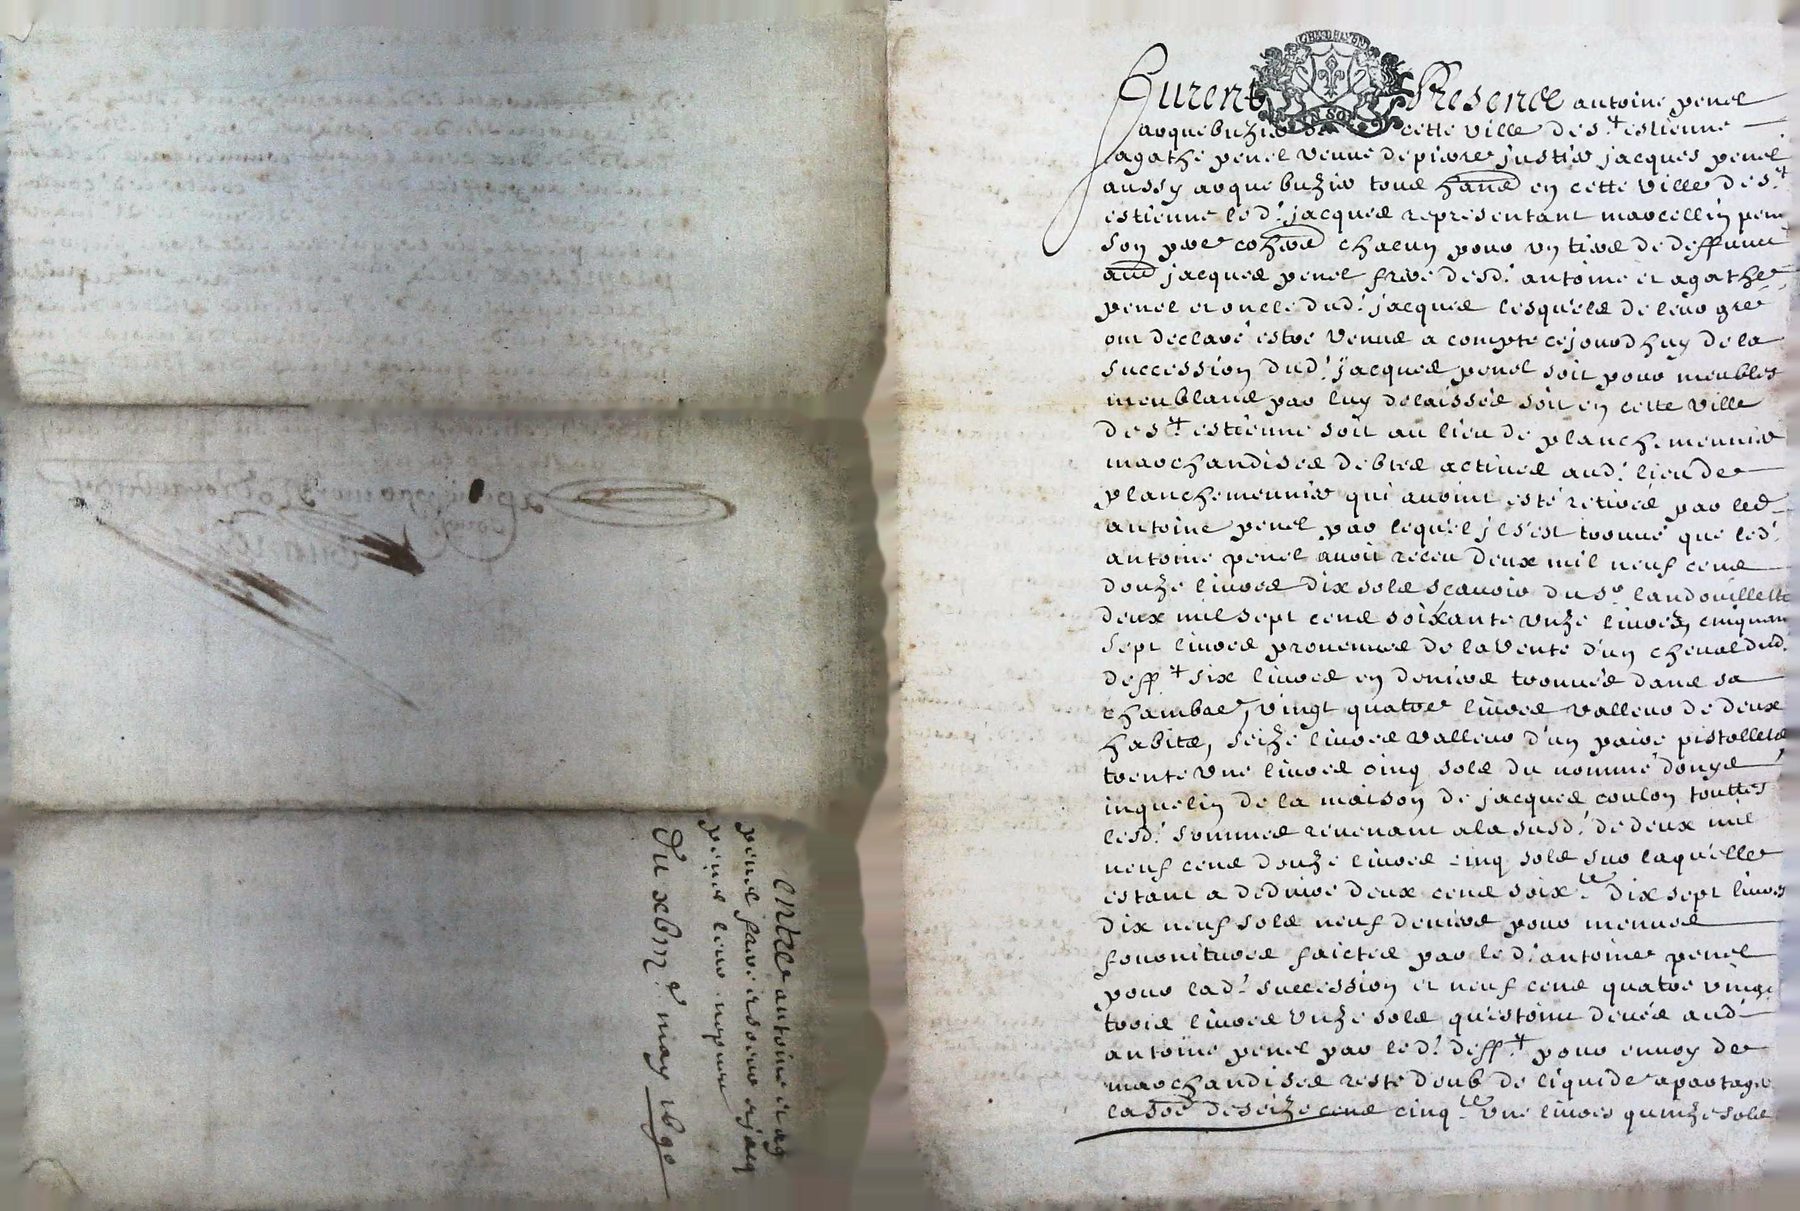 Entre antoine et ag
penel frere et soeur et jacq
penel leur nepveu
Du xbiii.e may 1690
Furent Presence antoine penel
arquebuzier de cette ville de s.t estienne
agathe penel veuve de pierre justier jacques penel
aussy arquebuzier tous hans en cette ville de s.t
estienne led. jacques representant marcellin pen
son pere cohers chacun pour un tiers de deffunct
aud jacques penel frere desd. antoine et agathe
penel et oncle dud. jacques lesquels de leur gre
ont declaré estre venus a compte cejourdhuy de la
succession dud. jacques penel soit pour meubles
meublans par luy delaissés soit en cette ville
de s.t estienne soit au lieu de planchemeunier
marchandises debtes actives aud. lieu de
planchemeunier qui avoint esté retirés par led
antoine penel par lequel il s'est trouvé que led.
antoine penel avoit receu deux mil neuf cens
douze livres dix sols scavoir du s.r landouillette
deux mil sept cens soixante unze livres, cinquan
sept livres provenues de la vente d'un cheval dud.
deff.t six livres en deniers trouvés dans sa
chambre, vingt quatre livres valleur de deux
habits, seize livres valleur d'un paire pistollets
trente une livres cinq sols du nommé donys
inquelin de la maison de jacques coulon touttes
lesd. sommes revenant a la susd. de deux mil
neuf cens douze livres cinq sols sur laquelle
estant a deduire deux cens soix.te dix sept livres
dix neuf sols neuf deniers pour menues
fournitures faictes par led. antoine penel
pour lad. succession et neuf cens quatre vingt
trois livres unze sols qu'estoint deués aud.
antoine penel par led. deff.t pour envoy de
marchandises reste doub de liquide a partager
la soe de seize cens cinq.te une livres quinze sols